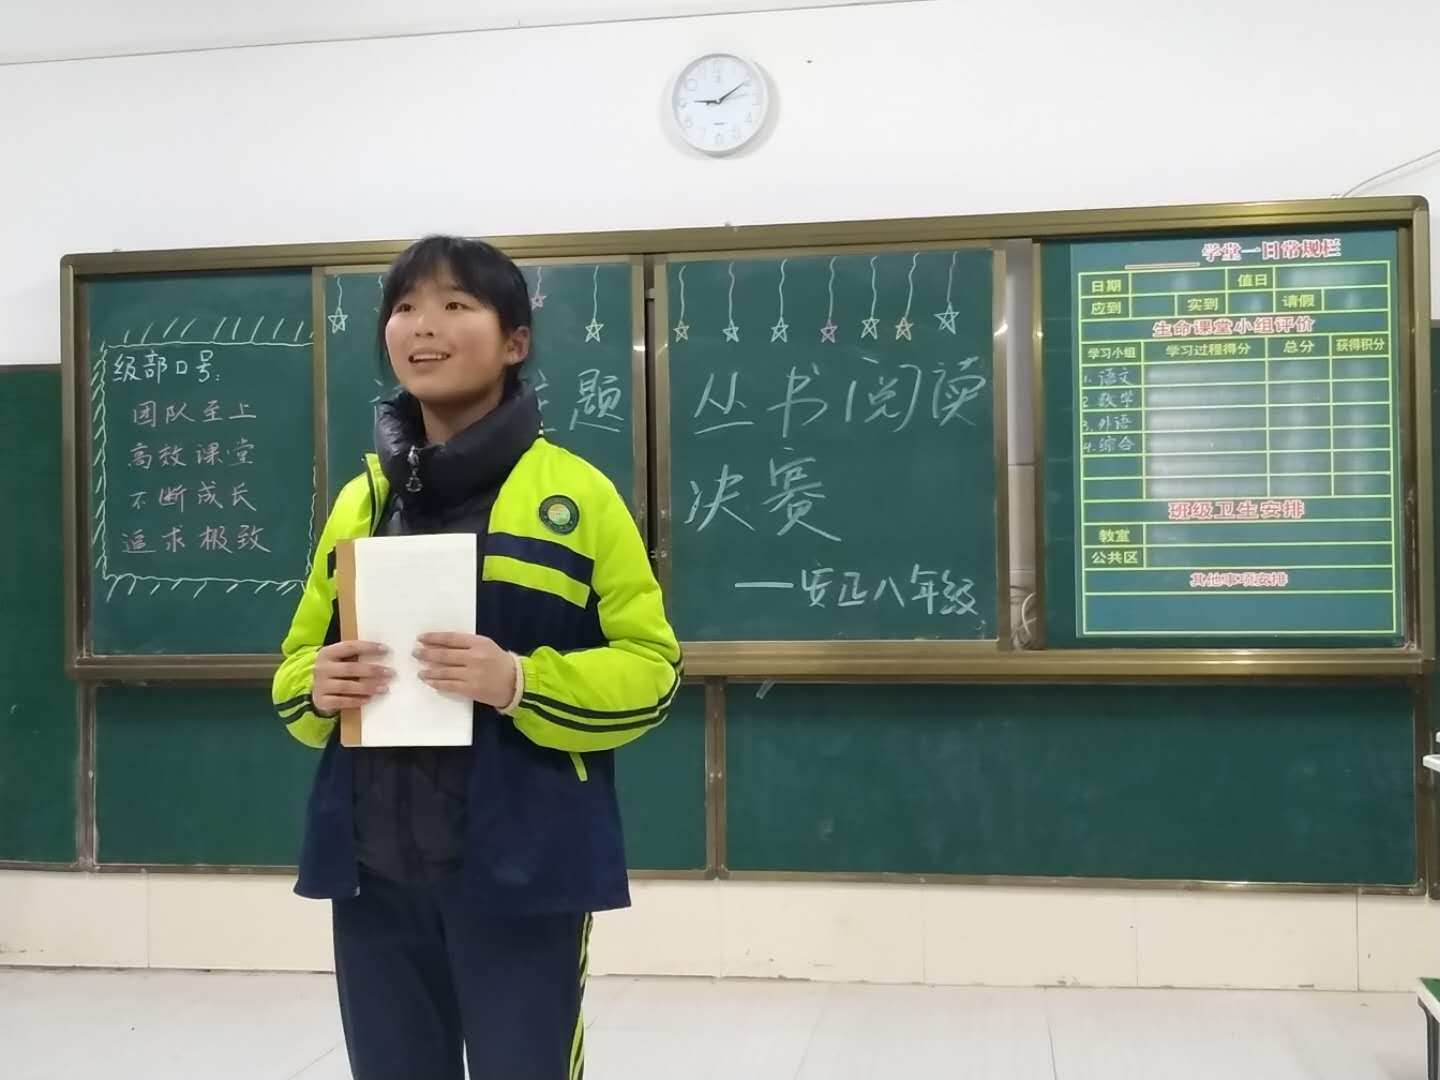 级部口号:
团队至上
高效课堂
不断成长
追求极致
题 丛书阅读
决赛
——安正八年级
学堂一日常规栏
日期 值日
应到 实到 请假
生命课堂小组评价
学习小组 学习过程得分 总分 获得积分
1. 语文
2. 数学
3. 外语
4. 综合
班级卫生安排
教室
公共区
其他事项安排